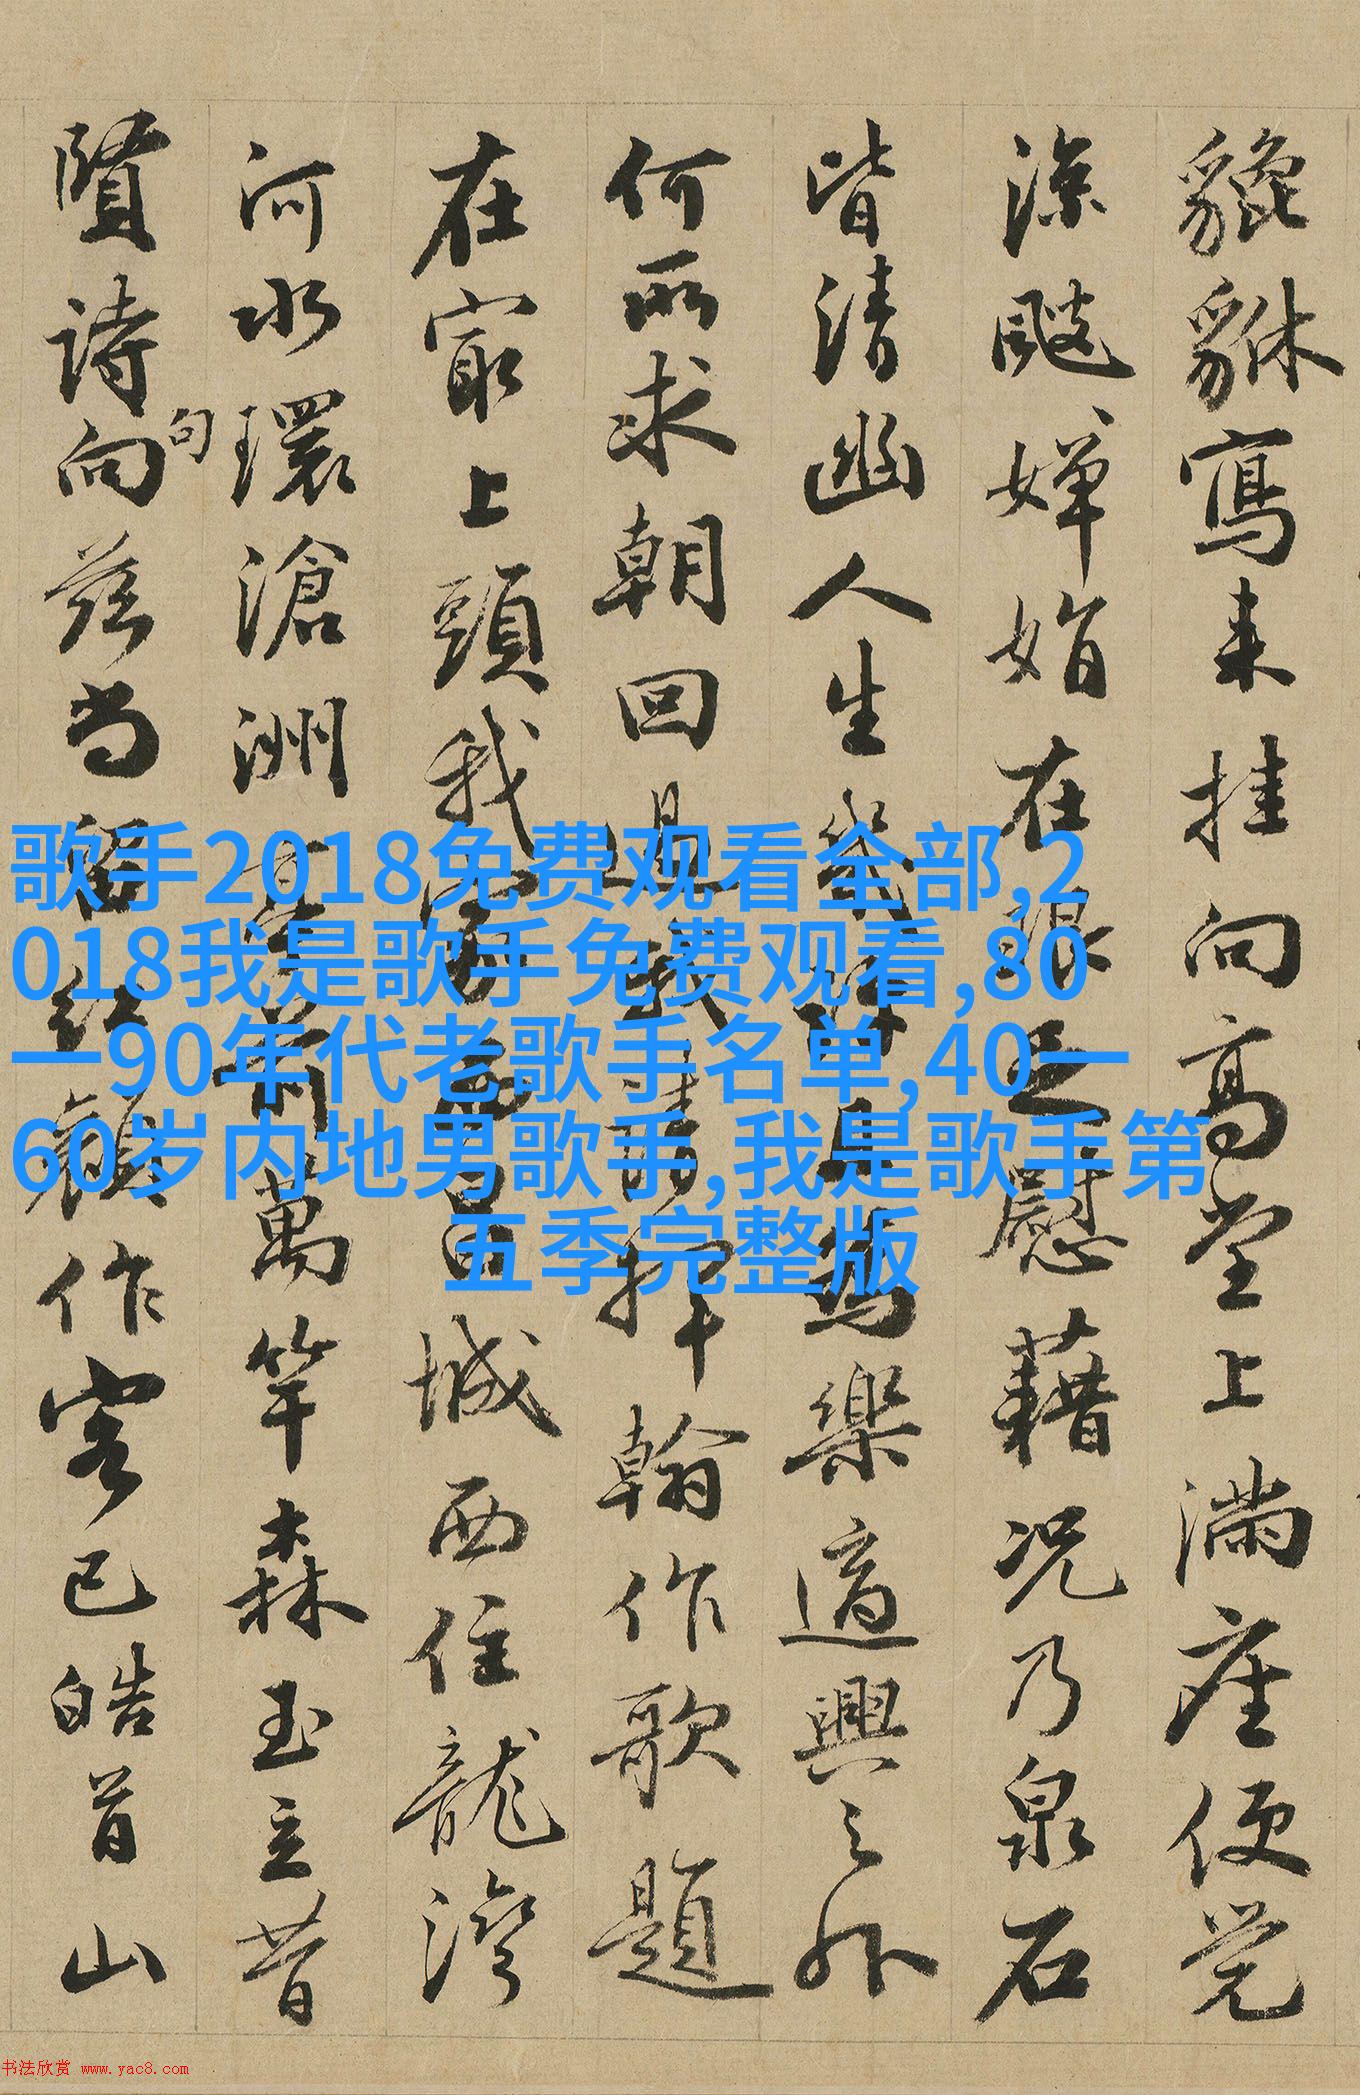 貔貅寫来挂向高堂上滿座便觉
涼嬋娟在眼足慰藉况乃泉石
皆清幽人生幾為樂適興之外
何所求朝回過我請揮翰作歌題
在最上頭我家昌城西住龍灣
河水環滄洲前萬竿森玉立昔
賢詩向茲尚留紅顏作客已皓首山
句
歌手2018免费观看全部,2
018我是歌手免费观看,80
一90年代老歌手名单,40一
60岁内地男歌手,我是歌手第
五季完整版
书法欣赏 www.yac8.com